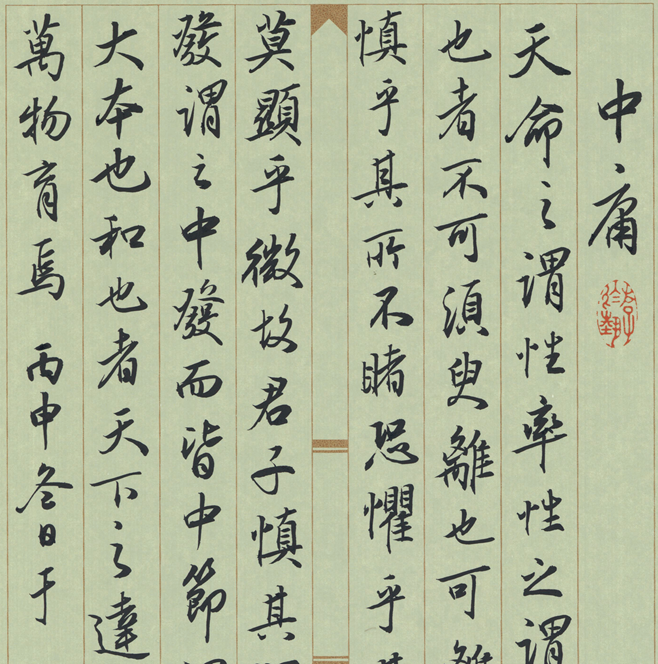 中庸
天命之謂性率性之謂
也者不可須臾離也可離
慎乎其所不睹恐懼乎其
莫顯乎微故君子慎其
發謂之中發而皆中節
大本也和也者天下之達
萬物育焉 丙申冬日于